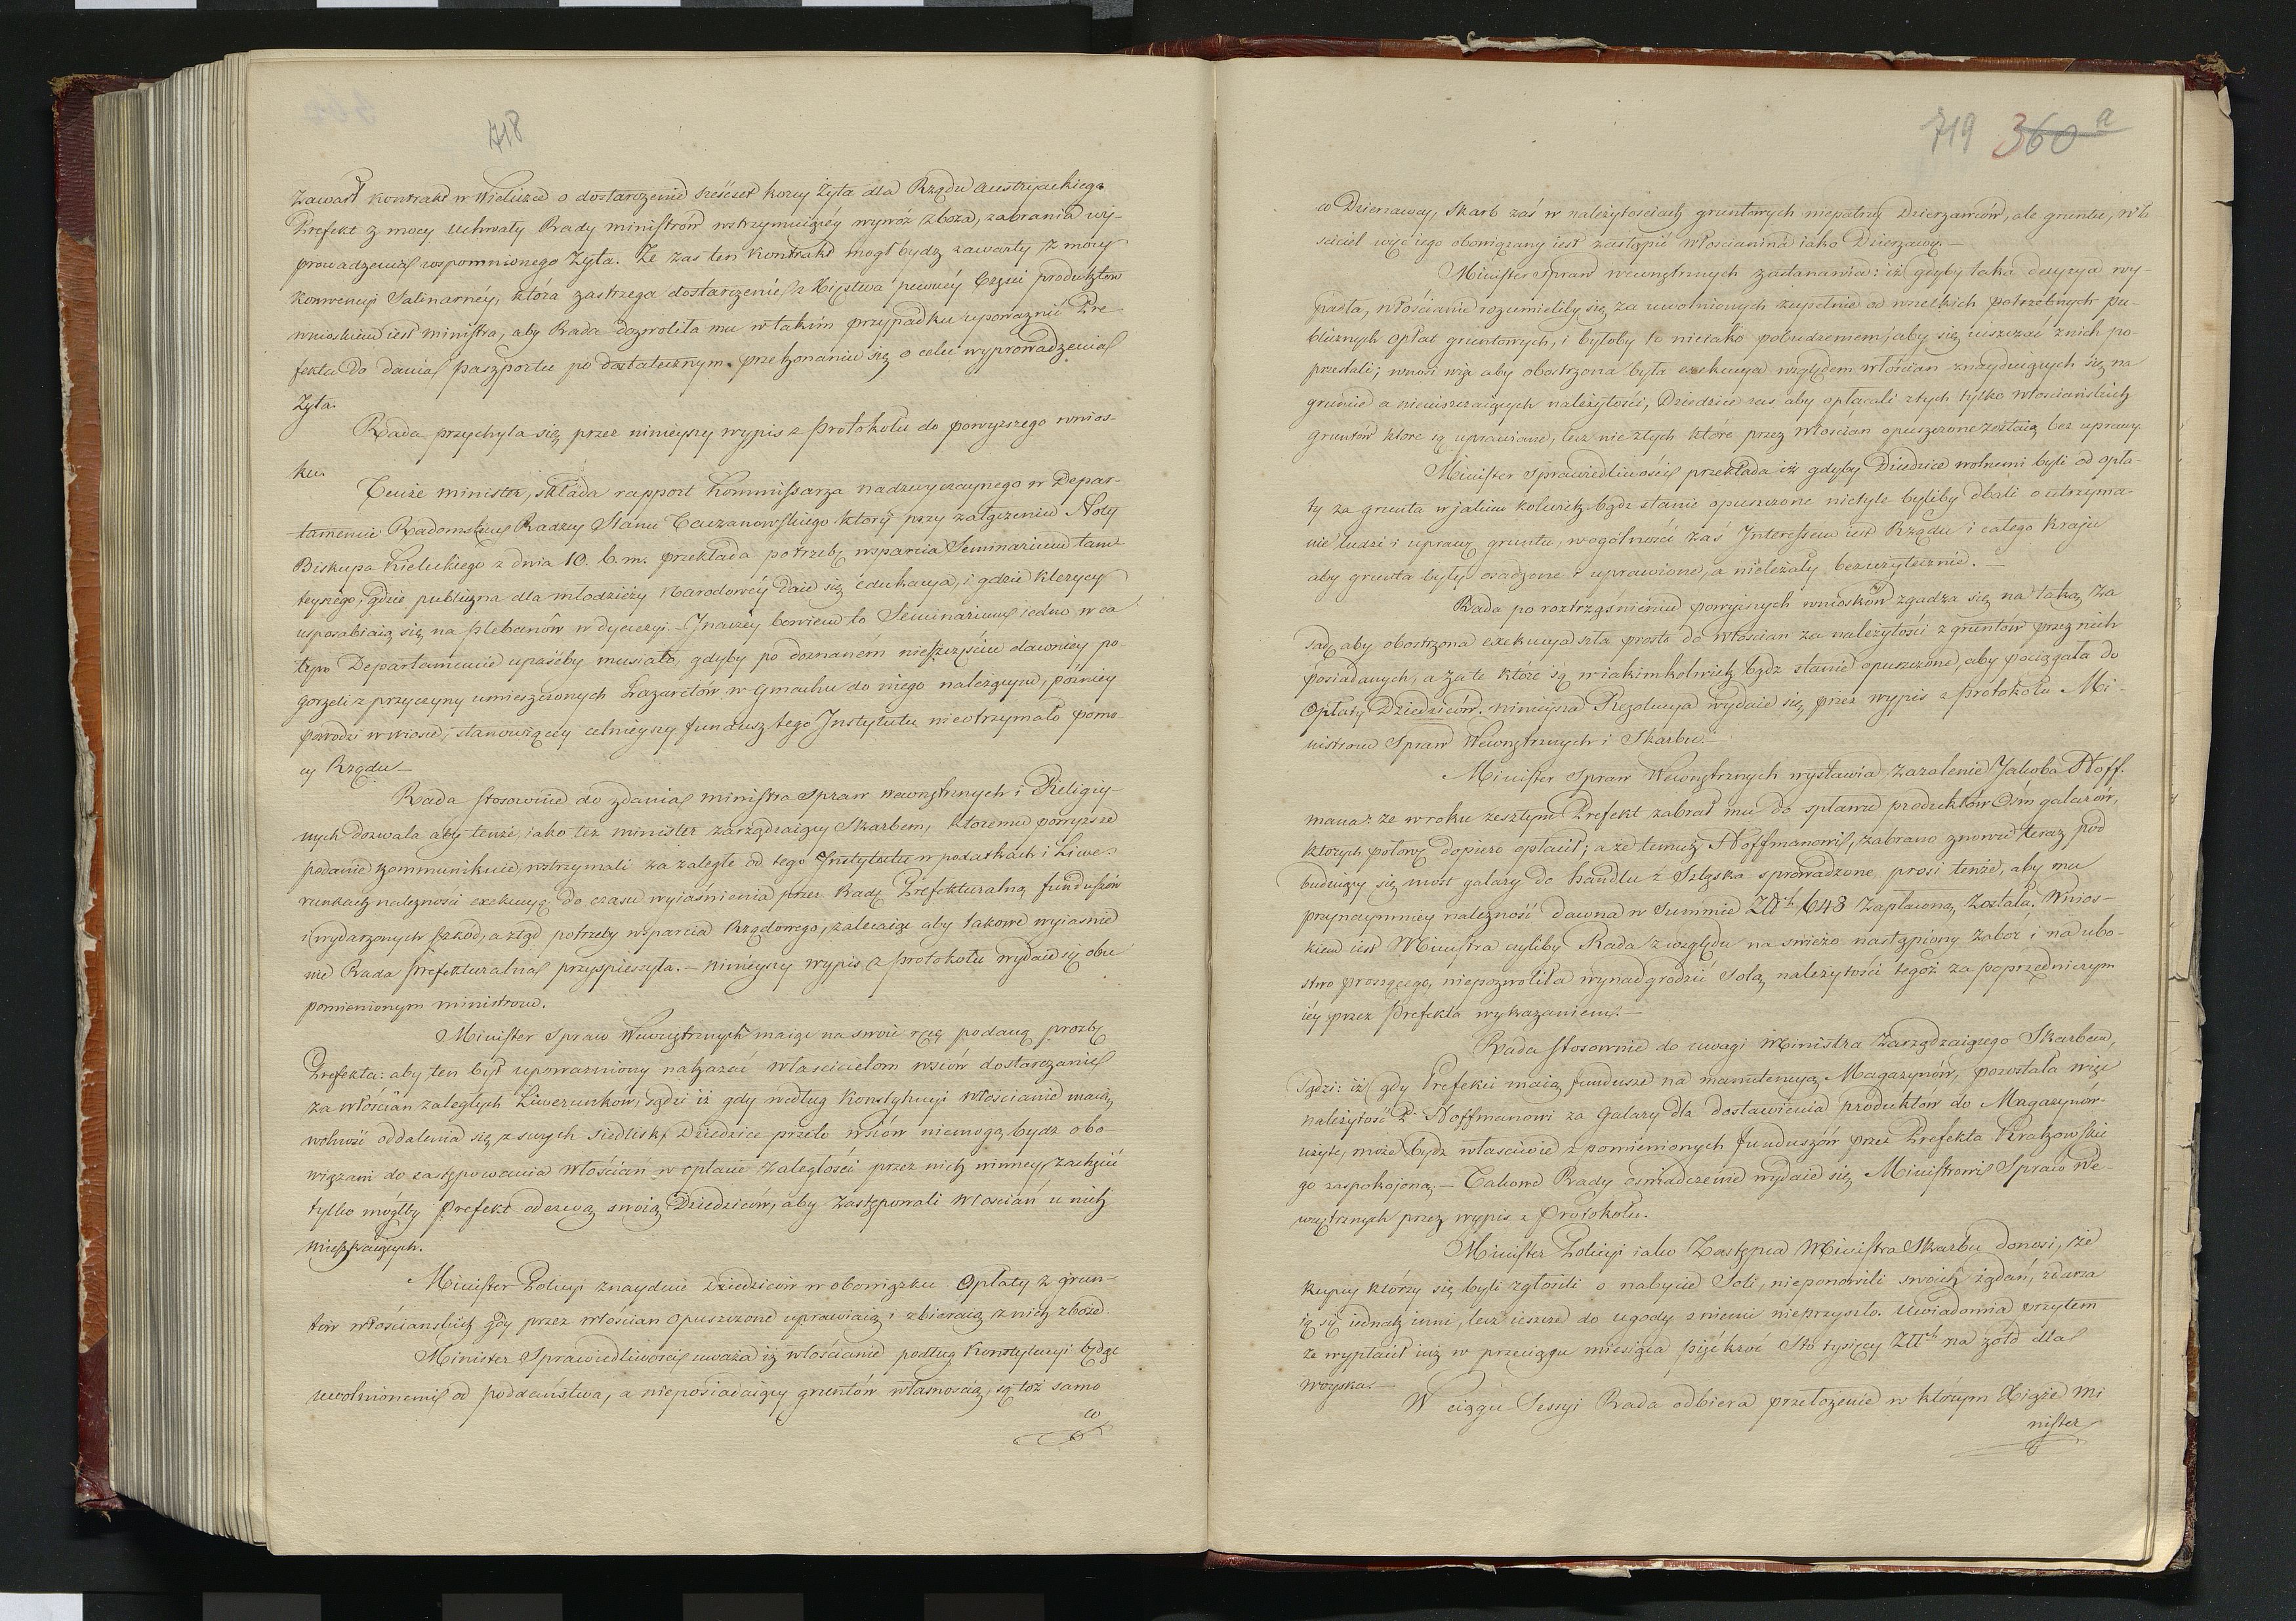 718
Zawarł kontrakt w Wieliczce o dostarczenie sześćset korcy Żyta dla Rządu Austryackiego
Prefekt z mocy Uchwały Rady ministrów wstrzymuiącéy wywóz zboża, zabrania wy-
prowadzenia wspomnionego Żyta. Że zaś ten Kontrakt mogł bydź zawarty z mocy
Konwencyi Salinarnéy, która zastrzega dostarczenie z Xięstwa pewnéy Części produktów
wnioskiem iest ministra, aby Rada dozwoliła mu w takim przypadku upoważnić Pre-
fekta do dania paszportu po dostatecznym przekonaniu się o celu wyprowadzenia
Żyta.
Rada przychyla się przez ninieyszy wypis z protokołu do powyższego wnios-
ku.
Tenże minister, składa rapport Kommissarza nadzwyczaynego w Depar-
tamencie Radomskim Radzcy Stanu który przy załączeniu Noty
Biskupa Kieleckiego z dnia 10. b. m. przekłada potrzebę wsparcia Seminarium tam-
teyszego, gdzie publiczna dla młodzieży Narodowéy daie się edukacya, i gdzie Klerycy
usposabiaią się na plebanów w dyecezyi. – Inaczéy bowiem to Seminarium iedno w ca-
łym Departamencie upaśćby musiało, gdyby po doznaném nieszczęściu dawniéy po-
gorzeli z przyczyny umieszczonych Lazaretów w Gmachu do niego należącym, późniéy
powodzi w wiosce, stanowiącéy celnieyszy fundusz tego Instytutu nieotrzymało pomo-
cy Rządu –
Rada stosownie do zdania ministra spraw wewnętrznych i Religiy-
nych dozwala aby tenże iako też minister zarządzaiący Skarbem, któremu powyższe
podanie kommunikuie, wstrzymali za zaległe od tego Instytutu w podatkach i Liwe-
runkach należności exekucyą do czasu wyiaśnienia przez Radę Prefekturalną funduszów
i wydarzonych szkód, a ztąd potrzeby wsparcia Rządowego, zalecaiąc aby takowe wyiaśnie-
nie Rada prefekturalna przyspieszyła. – ninieyszy wypis z protokołu wydaie się obu
pomienionym ministrom.
Minister Spraw Wewnętrznych maiąc na swoie ręcę podaną prozbę
Prefekta: aby ten był upoważniony nakazać właścicielom wsiów dostarczanie
za włościan zaległych Liwerunków, sądzi iż gdy według Konstytucyi włościanie maią
wolność oddalenia się z swych siedlisk, Dziedzice przeto wsiów niemogą bydź obo-
wiązani do zastępowania włościan w opłacie zaległości przez nich winney, zachęcić
tylko mógłby Prefekt odezwą swoią Dziedziców, aby zastępowali włościan u nich
mieszkaiących.
Minister Policyi znayduie dziedziców w obowiązku Opłaty z grun-
tów włościańskich gdy przez włościan opuszczone uprawiaią i zbieraią z nich zboże.
Minister Sprawiedliwości uważa iż włościanie podług Konstytucyi będąc
uwolnionemi od poddaństwa, a nieposiadaiący gruntów własnością, są toż samo
co
719 360 a
co Dzierżawcy, Skarb zaś w należytościach gruntowych niepatrzy Dzierżawców, ale gruntu, wła-
ściciel więc iego obowiązany iest zastąpić włościanina iako Dzierżawcę. –
Minister spraw wewnętrznych zastanawia: iż gdyby taka decyzya wy-
padła, włościanie rozumieliby się za uwolnionych zupełnie od wszelkich potrzebnych pu-
blicznych opłat gruntowych, i byłoby to nieiako pobudzeniem, aby się uiszczać z nich po-
przestali; wnosi więc aby obostrzona była exekucya względem włościan znayduiących się na
gruncie a nieuiszczaiących należytości, Dziedzice zaś aby opłacali z tych tylko włościańskich
gruntów które są uprawiane, lecz nie z tych które przez włościan opuszczone zostaią bez uprawy
Minister Sprawiedliwości przekłada iż gdyby Dziedzice wolnemi byli od opła-
ty za grunta w jakim kolwiek bądz stanie opuszczone nietyle byliby dbali o utrzyma-
nie ludzi i uprawę gruntu, w ogólności zaś Interessem iest Rządu i całego Kraju
aby grunta były osadzone i uprawione, a nieleżały bezużytecznie. –
Rada po roztrząśnieniu powyższych wniosków zgadza się na taką Za
sadę, aby obostrzona exekucya szła prosto do włościan za należytości z gruntów przez nich
posiadanych, a za te które są w iakimkolwiek bądz stanie opuszczone, aby pociągała do
Opłaty Dziedziców. ninieysza Rezolucya wydaie się przez wypis z protokołu Mi-
nistrom Spraw Wewnętrznych i Skarbu. –
Minister Spraw Wewnętrznych wystawia Zażalenie Jakoba Hoff-
mana: że w roku zeszłym Prefekt zabrał mu do spławu produktów Ośm galarów,
których połowę dopiero opłacił; a że temuż Hoffmanowi, zabrano znowu teraz pod
buduiący się most galary do handlu z Szląska sprowadzone, prosi tenże, aby mu
przynaymniéy należność dawna w Summie Złt 648 zapłacona, została. Wnios-
kiem iest Ministra czyliby Rada z względu na świeżo nastąpiony Zabór i na ubó-
stwo proszącego, niepozwoliła wynadgrodzić Solą należytości tegoż za poprzedniczym
iéy przez Prefekta wykazaniem. –
Rada stosownie do uwagi Ministra Zarządzaiącego Skarbem,
sądzi: iż gdy Prefekci maią fundusze na manutencyą Magazynów, pozostała więc
należytość P. Hoffmanowi za Galary dla dostawienia produktów do Magazynów
użyte, może bydź właściwie z pomienionych funduszów przez Prefekta Krakowskie-
go zaspokojoną. – Takowe Rady oświadczenie wydaie się Ministrowi Spraw We-
wnętrznych przez wypis z Protokołu.
Minister Policyi iako Zastępca Ministra Skarbu donosi, że
kupcy którzy się byli zgłosili o nabycie Soli, nieponowili swoich żądań, zdarza
ią się iednak inni, lecz ieszcze do ugody z niemi nieprzyszło. Uwiadomia przytem
że wypłacił iuż w przeciągu miesiąca pięćkroć Sto tysięcy Złt na żołd dla
Woyska. –
W ciągu Sessyi Rada odbiera przełożenie w którym Xiąże Mi
nister